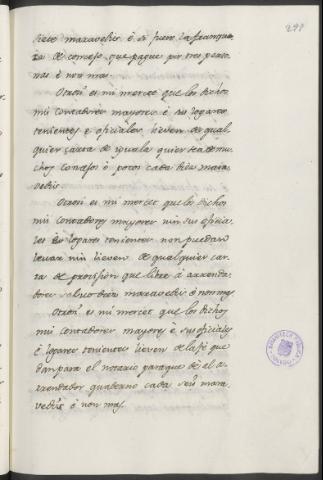 291
siete maravedis é si fuere la franque
za de concejo que pague por tres perso
nas é non mas.
Otrosi es mi merced que los dichos
mis contadores mayores é sus logares
tenientes é oficiales lieven de qual
quier carta de iguala quier sea de mu
chos concejos ó pocos cada diez mara
vedis
Otrosi es mi merced que los dichos
mis contadores mayores nin sus oficia
les é logares tenientes non puedan
levar nin lieven de qualquier car
ta de provision que libre á arrenda
dores salvo diez maravedis é non mas
Otrosi es mi merced que los dichos
mis contadores mayores é sus oficiales
é logares tenientes lieven de la fé que
dan para el notario para que dé el ar
rendador quaderno cada seis mara
vedis é non mas.